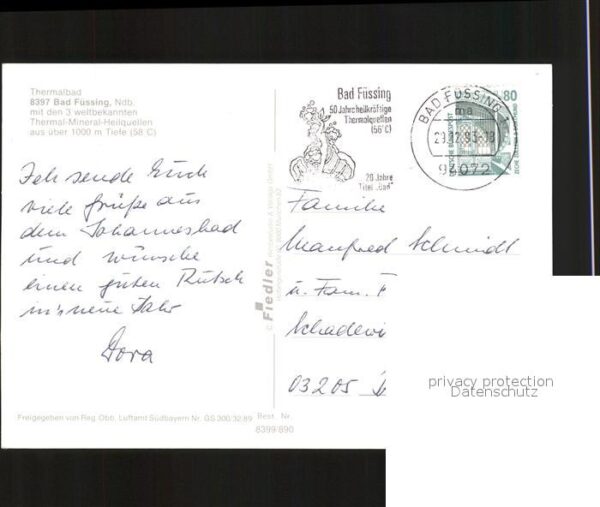 Thermalbad
8397 Bad Füssing, Ndb.
mit den 3 weltbekannten
Thermal-Mineral-Heilquellen
aus über 1000 m Tiefe (58 C)
Ich sende Euch
viele Grüße aus
dem Johannesbad
und wünsche
einen guten Rutsch
in's neue Jahr
Dora
Freigegeben von Reg. Obb. Luftamt Südbayern Nr. GS 300/32/89
Best. Nr.
8399/890
© Fiedler
Bad Füssing
50 Jahre heilkräftige
Thermalquellen
(56°C)
20 Jahre
Titel „Bad“
BAD FÜSSING
ma
29.12.93-18
94072
80
DEUTSCHE BUNDESPOST
Familie
Manfred Schmidt
u. Fam. F
Schadewi
03205
privacy protection
Datenschutz